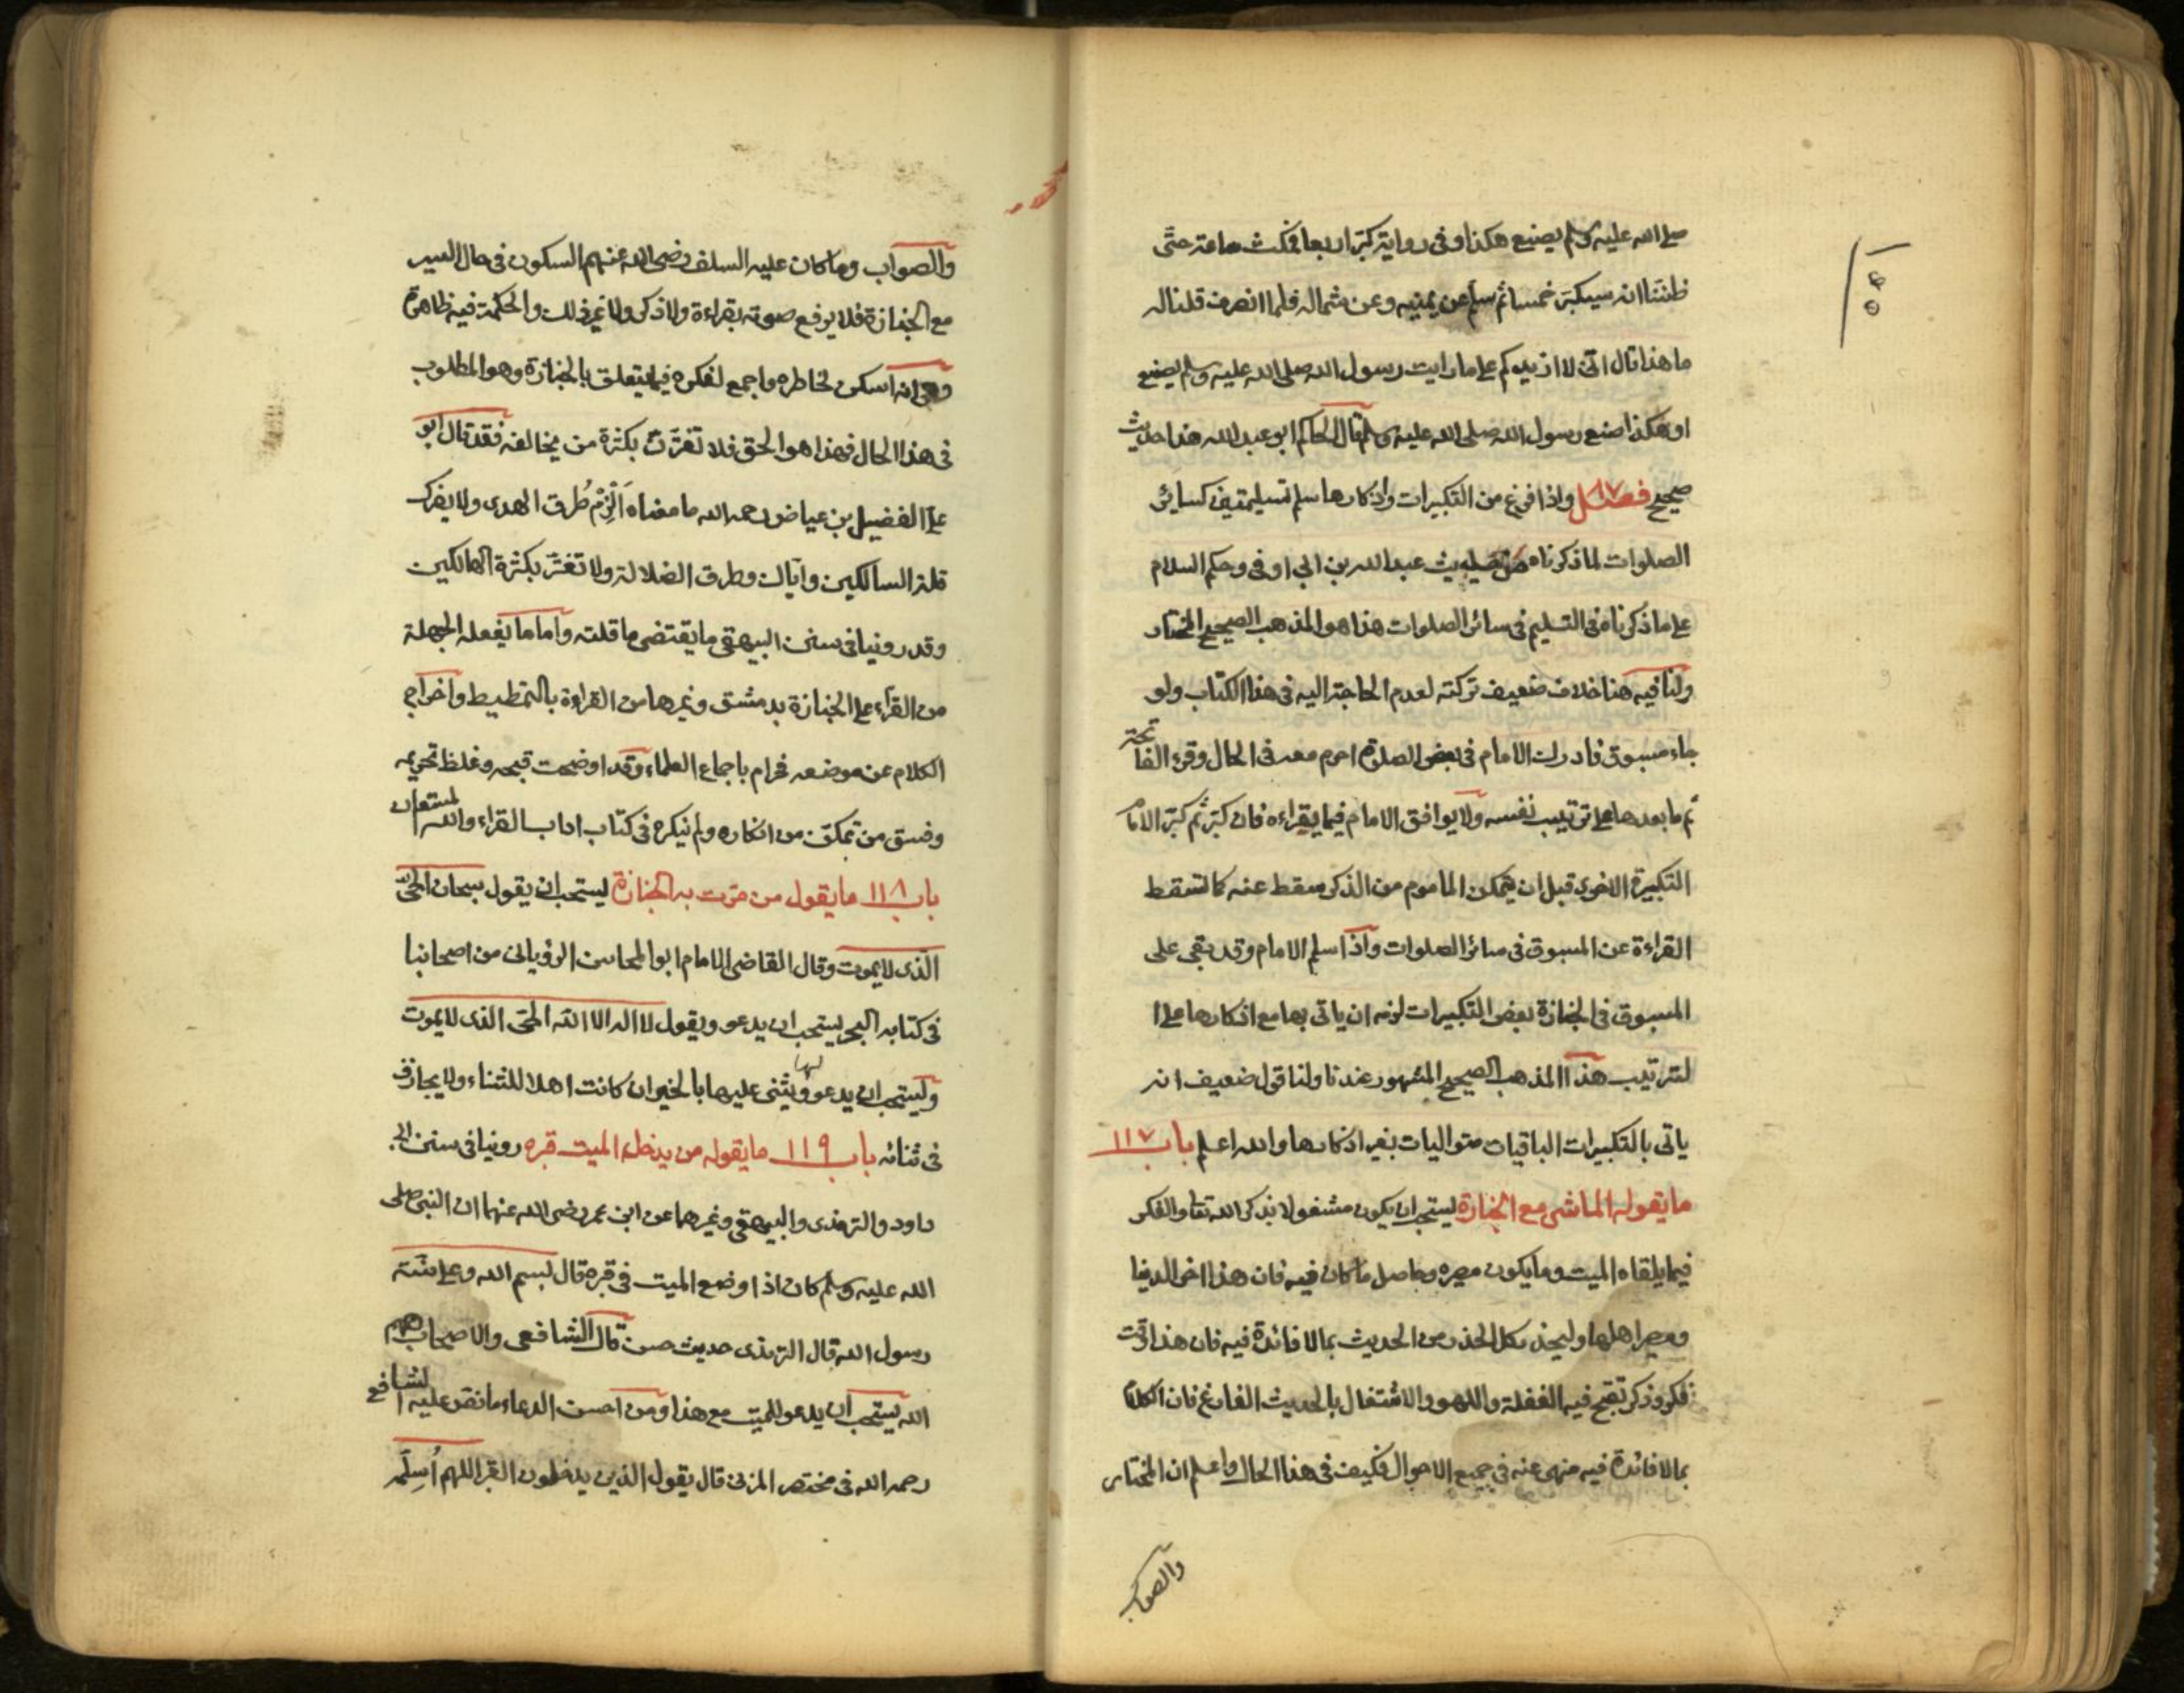 صلى الله عليه وسلم يصنع هكذا وفى رواية كبّر اربعا فمكث ساعة حتّى
ظننا انه سيكبّر خمسا ثم سلم عن يمينه وعن شماله فلما انصرف قلنا له
ما هذا قال انّى لا ازيدكم على ما رايت رسول الله صلى الله عليه وسلم يصنع
او هكذا صنع رسول الله صلى الله عليه وسلم قال الحاكم ابو عبد الله هذا حديث
صحيح فصل واذا فرغ من التكبيرات واذكارها سلم تسليمتين كسائر
الصلوات لما ذكرناه من حديث عبد الله بن ابى اوفى وحكم السلام
على ما ذكرناه فى التسليم فى سائر الصلوات هذا هو المذهب الصحيح المختار
ولنا فيه هنا خلاف ضعيف تركته لعدم الحاجة اليه فى هذا الكتاب ولو
جاء مسبوق فادرك الامام فى بعض الصلوة احرم معه فى الحال وقرء الفاتحة
ثم ما بعدها على ترتيب نفسه ولا يوافق الامام فيما يقراءه فان كبّر ثم كبّر الامام
التكبيرة الاخرى قبل ان يتمكن الماموم من الذكر سقط عنه كما تسقط
القراءة عن المسبوق فى سائر الصلوات واذا سلم الامام وقد بقى على
المسبوق فى الجنازة بعض التكبيرات لزمه ان ياتى بها مع اذكارها على ا
لترتيب هذا المذهب الصحيح المشهور عندنا ولنا قول ضعيف انه
ياتى بالتكبيرات الباقيات متواليات بغير اذكارها والله اعلم باب ١١٧
ما يقوله الماشى مع الجنازة يستحب ان يكون مشغولا بذكر الله تعا والفكر
فيما يلقاه الميت وما يكون مصيره وحاصل ما كان فيه فان هذا اخر الدنيا
ومصير اهلها وليحذر كل الحذر من الحديث بما لا فائدة فيه فان هذا وقت
فكر وذكر تقبح فيه الغفلة واللهو والاشتغال بالحديث الفارغ فان الكلام
بما لا فائدة فيه منهى عنه فى جميع الاحوال فكيف فى هذا الحال واعلم ان المختار
والصواب
والصواب وما كان عليه السلف رضى الله عنهم السكون فى حال السير
مع الجنازة فلا يرفع صوته بقراءة ولا ذكر ولا غير ذلك والحكمة فيه ظاهرة
وهى انه اسكن لخاطره واجمع لفكره فيما يتعلق بالجنازة وهو المطلوب
فى هذا الحال فهذا هو الحق فلا تغترّن بكثرة من يخالفه فقد قال ابو
على الفضيل بن عياض رحمه الله ما معناه اَلْزِمْ طُرق الهدى ولا يضرك
قلة السالكين واياك وطرق الضلالة ولا تغترّ بكثرة الهالكين
وقد روينا فى سنن البيهقى ما يقتضى ما قلته واما ما يفعله الجهلة
من القراء على الجنازة بدمشق وغيرها من القراءة بالتمطيط واخراج
الكلام عن موضعه فحرام باجماع العلماء وقد اوضحت قبحه وغلظ تحريمه
وفسق من تمكن من انكاره ولم ينكره فى كتاب اداب القراء والله المستعان
باب ١١٨ ما يقول من مرّت به الجنازة يستحب ان يقول سبحان الحىّ
الذى لا يموت وقال القاضى الامام ابو المحاسن الرويانى من اصحابنا
فى كتابه البحر يستحب ان يدعو ويقول لا اله الا الله الحى الذى لا يموت
ويستحب ان يدعو لها ويثنى عليها بالخير ان كانت اهلا للثناء ولا يجازف
فى ثنائه باب ١١٩ ما يقوله من يدخل الميت قبره روينا فى سنن ابى
داود والترمذى والبيهقى وغيرهما عن ابن عمر رضى الله عنهما ان النبى صلى
الله عليه وسلم كان اذا وضع الميت فى قبره قال بسم الله وعلى سنّة
رسول الله قال الترمذى حديث حسن قال الشافعى والاصحاب رحمهم
الله يستحب ان يدعو للميت مع هذا ومن احسن الدعاء ما نص عليه الشافع
رحمه الله فى مختصر المزنى قال يقول الذين يدخلون القبر اللهم اُسلِمَه